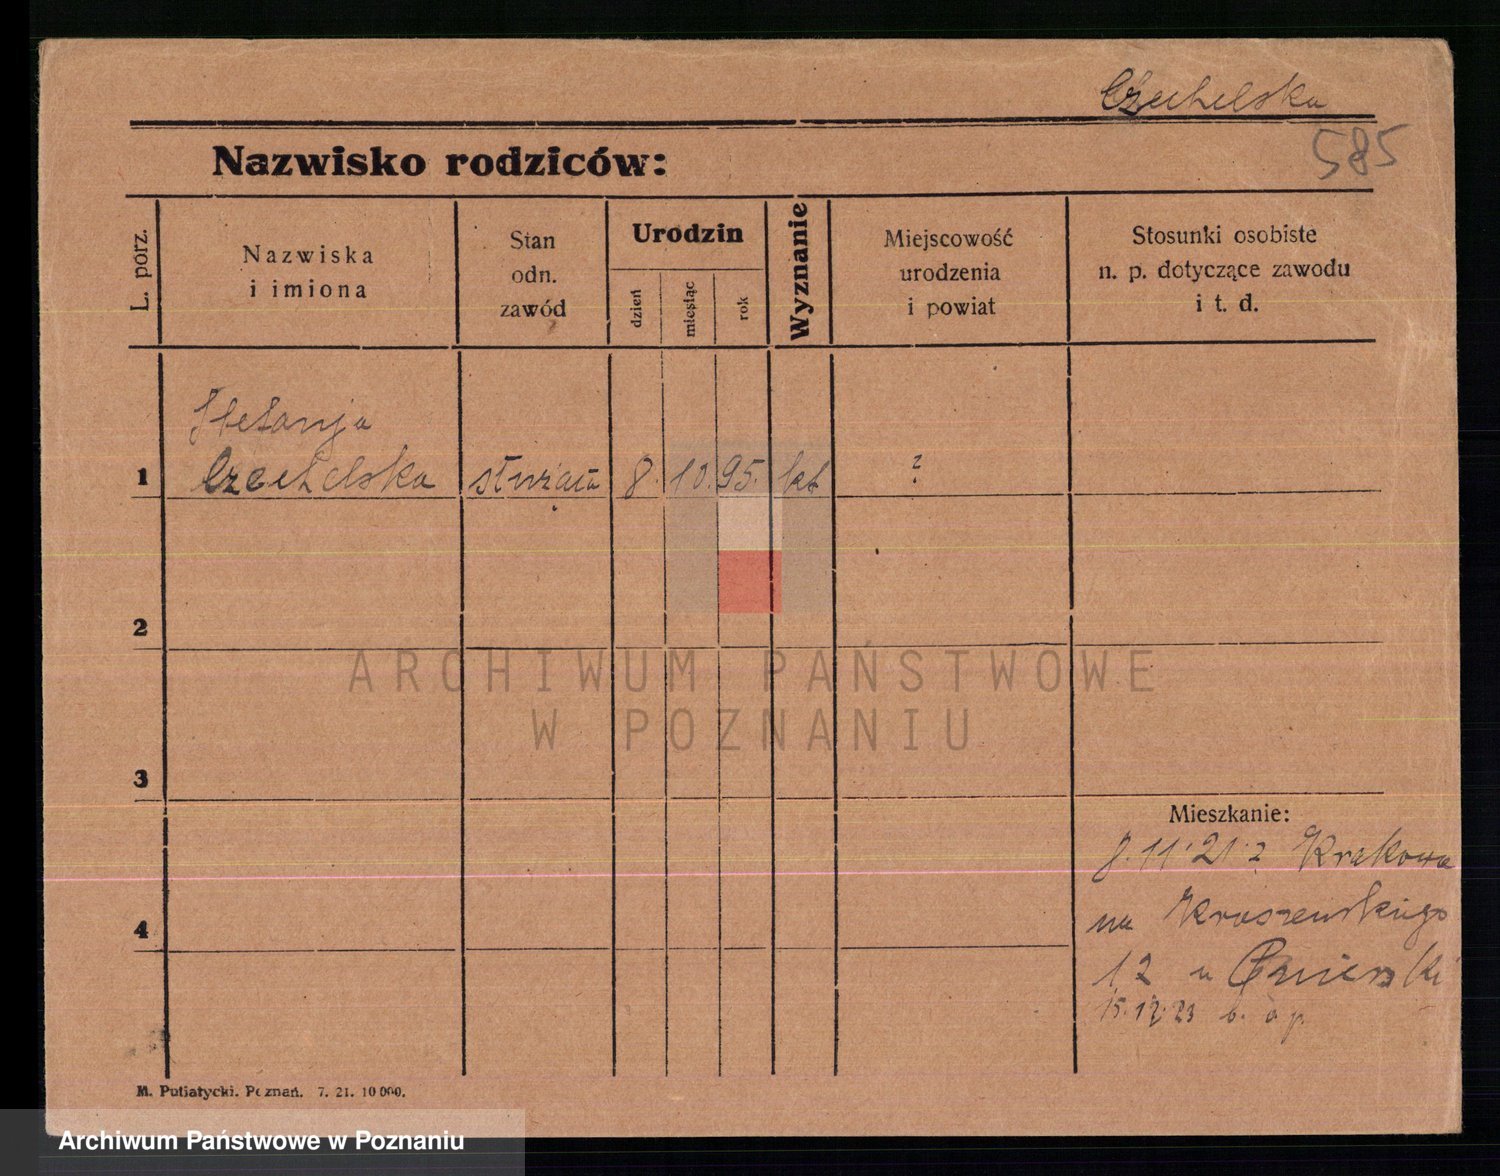 Czechelska
585
Nazwisko rodziców:
L. porz.
Nazwiska
i imiona
Stan
odn.
zawód
Urodzin
dzień
miesiąc
rok
Wyznanie
Miejscowość
urodzenia
i powiat
Stosunki osobiste
n. p. dotyczące zawodu
i t. d.
Stefanja
1 Czechelska służąca 8. 10. 95. kat ?
2
ARCHIWUM PAŃSTWOWE
W POZNANIU
3
Mieszkanie:
8.11.21 z Krakowa
4
na Kraszewskiego
12 u
15.12.23 b. o. p.
M. Putiatycki. Poznań. 7. 21. 10 000.
Archiwum Państwowe w Poznaniu